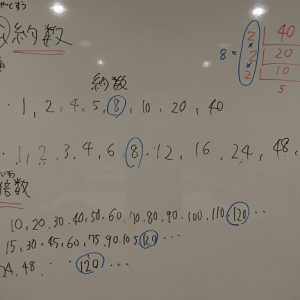 約数
2 40
8= 2 20
2 10
5
約数
・1, 2, 4, 5, 8, 10, 20, 40
・1, 2, 3, 4, 6, 8, 12, 16, 24, 48,
倍数
10, 20, 30, 40, 50, 60, 70, 80, 90, 100, 110, 120 ...
15, 30, 45, 60, 75, 90, 105, 120 ...
24, 48, ・・ 120 ...